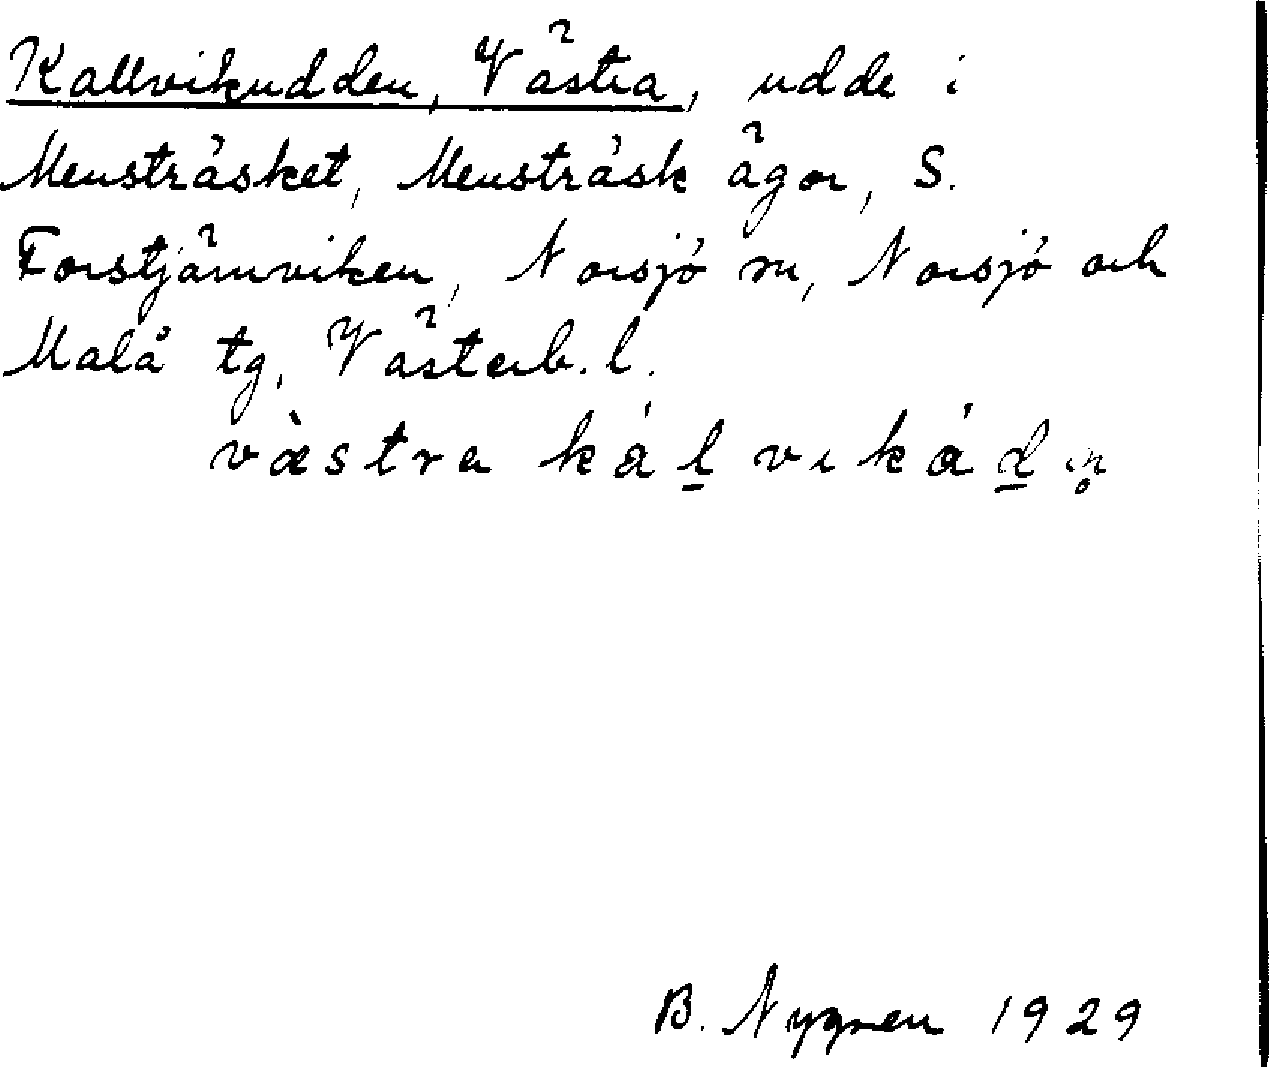 Kallvikudden, Västra, udde i
Mensträsket, Mensträsk ägor, S.
Forstjärnviken, Norsjö sn, Norsjö och
Malå tg, Västerb. l.
væ̀stra kálvikádn̥
B. Nygren 1929